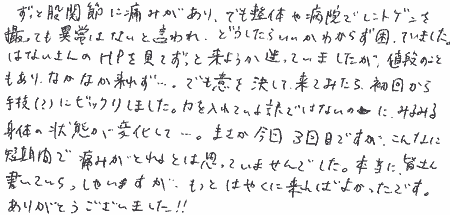 ずっと股関節に痛みがあり、でも整体や病院でレントゲンを
撮っても異常はないと言われ、どうしたらいいかわからず困っていました。
はないさんのHPを見てずっと来ようか迷っていましたが、値段のこと
もあり、なかなか来れず…。でも意を決して来てみたら、初回から
手技(?)にビックリしました。力を入れている訳ではないのに、みるみる
身体の状態が変化して…。まだ今日3回目ですが、こんなに
短期間で痛みがとれるとは思っていませんでした。本当に、皆さん
書いていらっしゃいますが、もっとはやくに来ればよかったです。
ありがとうございました!!